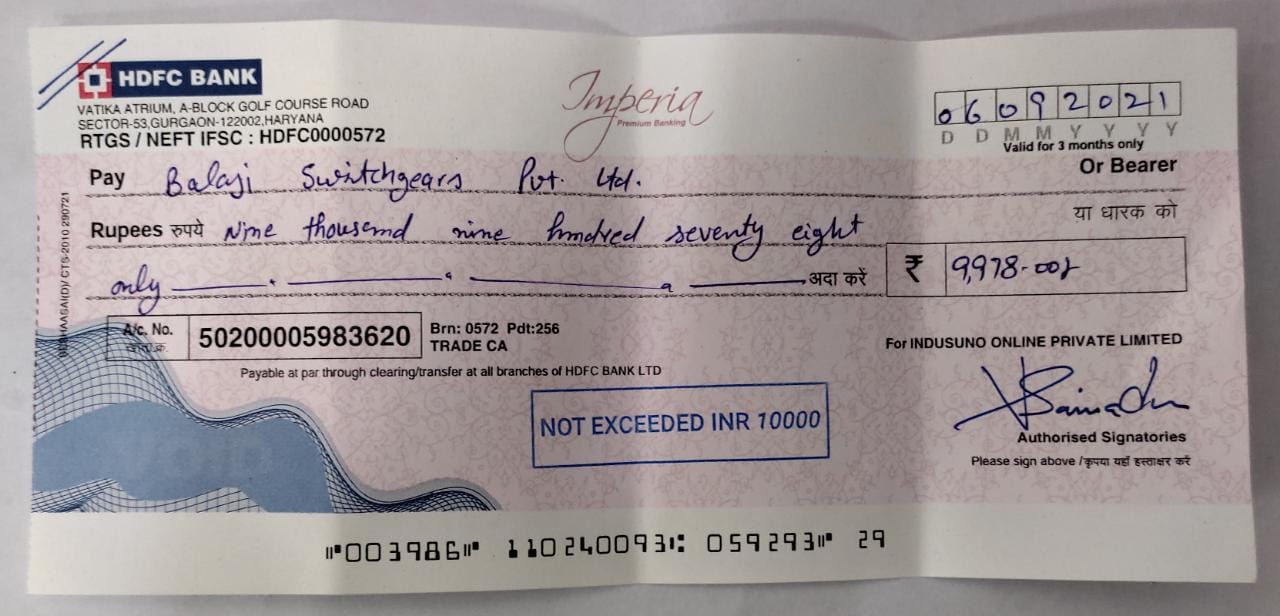 HDFC BANK
VATIKA ATRIUM, A-BLOCK GOLF COURSE ROAD
SECTOR-53,GURGAON-122002,HARYANA
RTGS / NEFT IFSC : HDFC0000572
Imperia
Premium Banking
06092021
D D M M Y Y Y Y
Valid for 3 months only
Pay Balaji Switchgears Pvt. Ltd.
Or Bearer
या धारक को
Rupees रुपये Nine thousand nine hundred seventy eight
only अदा करें
₹ 9,978-00/-
A/c. No. 50200005983620
खाता क्र.
Brn: 0572 Pdt:256
TRADE CA
Payable at par through clearing/transfer at all branches of HDFC BANK LTD
For INDUSUNO ONLINE PRIVATE LIMITED
NOT EXCEEDED INR 10000
Authorised Signatories
Please sign above /कृपया यहाँ हस्ताक्षर करें
CTS-2010 290721
VOID
⑈003986⑈ 110240093⑆ 059293⑈ 29